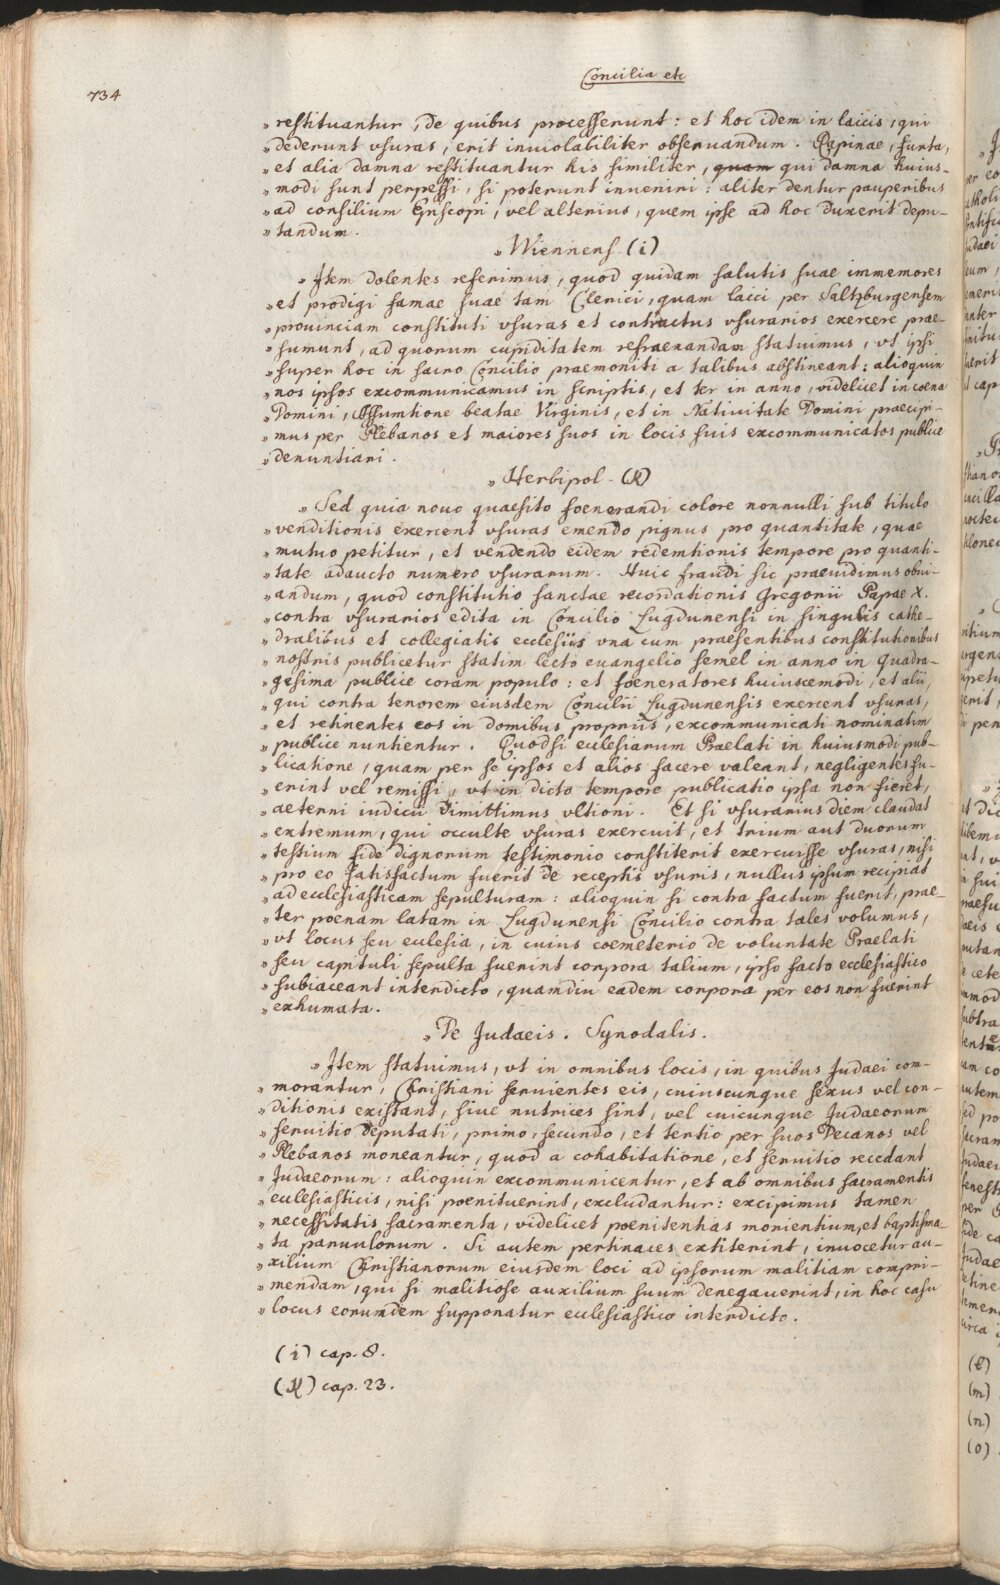 Concilia etc
734
„ restituantur, de quibus processerunt: et hoc idem in laicis, qui
„ dederunt vsuras, erit inuiolabiliter obseruandum. Rapinae, furta,
„ et alia damna restituantur his similiter, quam qui damna huius-
„ modi sunt perpessi, si poterunt inueniri: aliter dentur pauperibus
„ ad consilium Episcopi, vel alterius, quem ipse ad hoc duxerit depu-
„ tandum.
„ Wiennens. (i)
„ Item dolentes referimus, quod quidam salutis suae immemores
„ et prodigi famae suae tam Clerici, quam laici per Saltzburgensem
„ prouinciam constituti vsuras et contractus vsurarios exercere prae-
„ sumunt, ad quorum cupiditatem refraenandam statuimus, vt ipsi
„ super hoc in sacro Concilio praemoniti a talibus abstineant: alioquin
„ nos ipsos excommunicamus in scriptis, et ter in anno, videlicet in coena
„ Domini, Assumtione beatae Virginis, et in Natiuitate Domini praecipi-
„ mus per Plebanos et maiores suos in locis suis excommunicatos publice
„ denuntiari.
„ Herbipol. (k)
„ Sed quia nouo quaesito foenerandi colore nonnulli sub titulo
„ venditionis exercent vsuras emendo pignus pro quantitate, quae
„ mutuo petitur, et vendendo eidem redemtionis tempore pro quanti-
„ tate adaucto numero vsurarum. Huic fraudi sic praeuidimus obui-
„ andum, quod constitutio sanctae recordationis Gregorii Papae X.
„ contra vsurarios edita in Concilio Lugdunensi in singulis cathe-
„ dralibus et collegiatis ecclesiis vna cum praesentibus constitutionibus
„ nostris publicetur statim lecto euangelio semel in anno in quadra-
„ gesima publice coram populo: et foeneratores huiuscemodi, et alii,
„ qui contra tenorem eiusdem Concilii Lugdunensis exercent vsuras,
„ et retinentes eos in domibus propriis, excommunicati nominatim
„ publice nuntientur. Quodsi ecclesiarum Praelati in huiusmodi pub-
„ licatione, quam per se ipsos et alios facere valeant, negligentes fu-
„ erint vel remissi, vt in dicto tempore publicatio ipsa non fieret,
„ aeterni iudicii dimittimus vltioni. Et si vsurarius diem claudat
„ extremum, qui occulte vsuras exercuit, et trium aut duorum
„ testium fide dignorum testimonio constiterit exercuisse vsuras, nisi
„ pro eo satisfactum fuerit de receptis vsuris, nullus ipsum recipiat
„ ad ecclesiasticam sepulturam: alioquin si contra factum fuerit, prae-
„ ter poenam latam in Lugdunensi Concilio contra tales volumus,
„ vt locus seu ecclesia, in cuius coemeterio de voluntate Praelati
„ seu capituli sepulta fuerint corpora talium, ipso facto ecclesiastico
„ subiaceant interdicto, quamdiu eadem corpora per eos non fuerint
„ exhumata.
„ De Judaeis. Synodalis.
„ Item statuimus, vt in omnibus locis, in quibus Judaei com-
„ morantur, Christiani seruientes eis, cuiuscunque sexus vel con-
„ ditionis existant, siue nutrices sint, vel cuicunque Judaeorum
„ seruitio deputati, primo, secundo, et tertio per suos Decanos vel
„ Plebanos moneantur, quod a cohabitatione, et seruitio recedant
„ Judaeorum: alioquin excommunicentur, et ab omnibus sacramentis
„ ecclesiasticis, nisi poenituerint, excludantur: excipimus tamen
„ necessitatis sacramenta, videlicet poenitentias morientium, et baptisma-
„ ta paruulorum. Si autem pertinaces extiterint, inuocetur au-
„ xilium Christianorum eiusdem loci ad ipsorum malitiam compri-
„ mendam, qui si malitiose auxilium suum denegauerint, in hoc casu
„ locus eorumdem supponatur ecclesiastico interdicto.
(i) cap. 8.
(k) cap. 23.
(l)
(m)
(n)
(o)